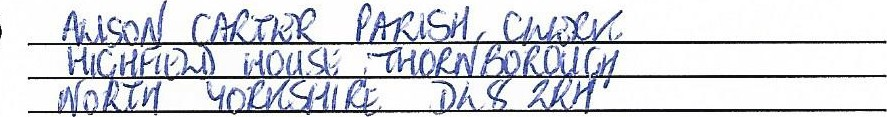 ALISON CARTER PARISH CLERK
HIGHFIELD HOUSE THORNBOROUGH
NORTH YORKSHIRE DL8 2RH